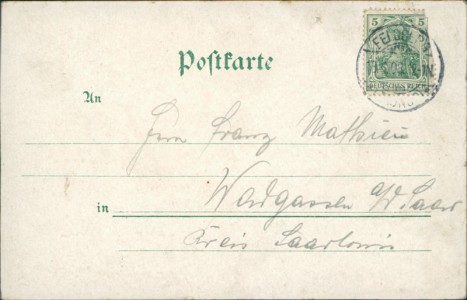 5 5
DEUTSCHES REICH
Postkarte
An
Herrn Franz Mathieu
in Wadgassen a/d. Saar
Kreis Saarlouis